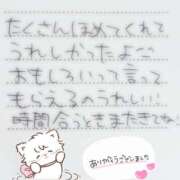 たくさんほめてくれて
うれしかったよ︎
おもしろいって言って
もらえるのうれしい!!
時間合うときまたきてな
ありがとうございました